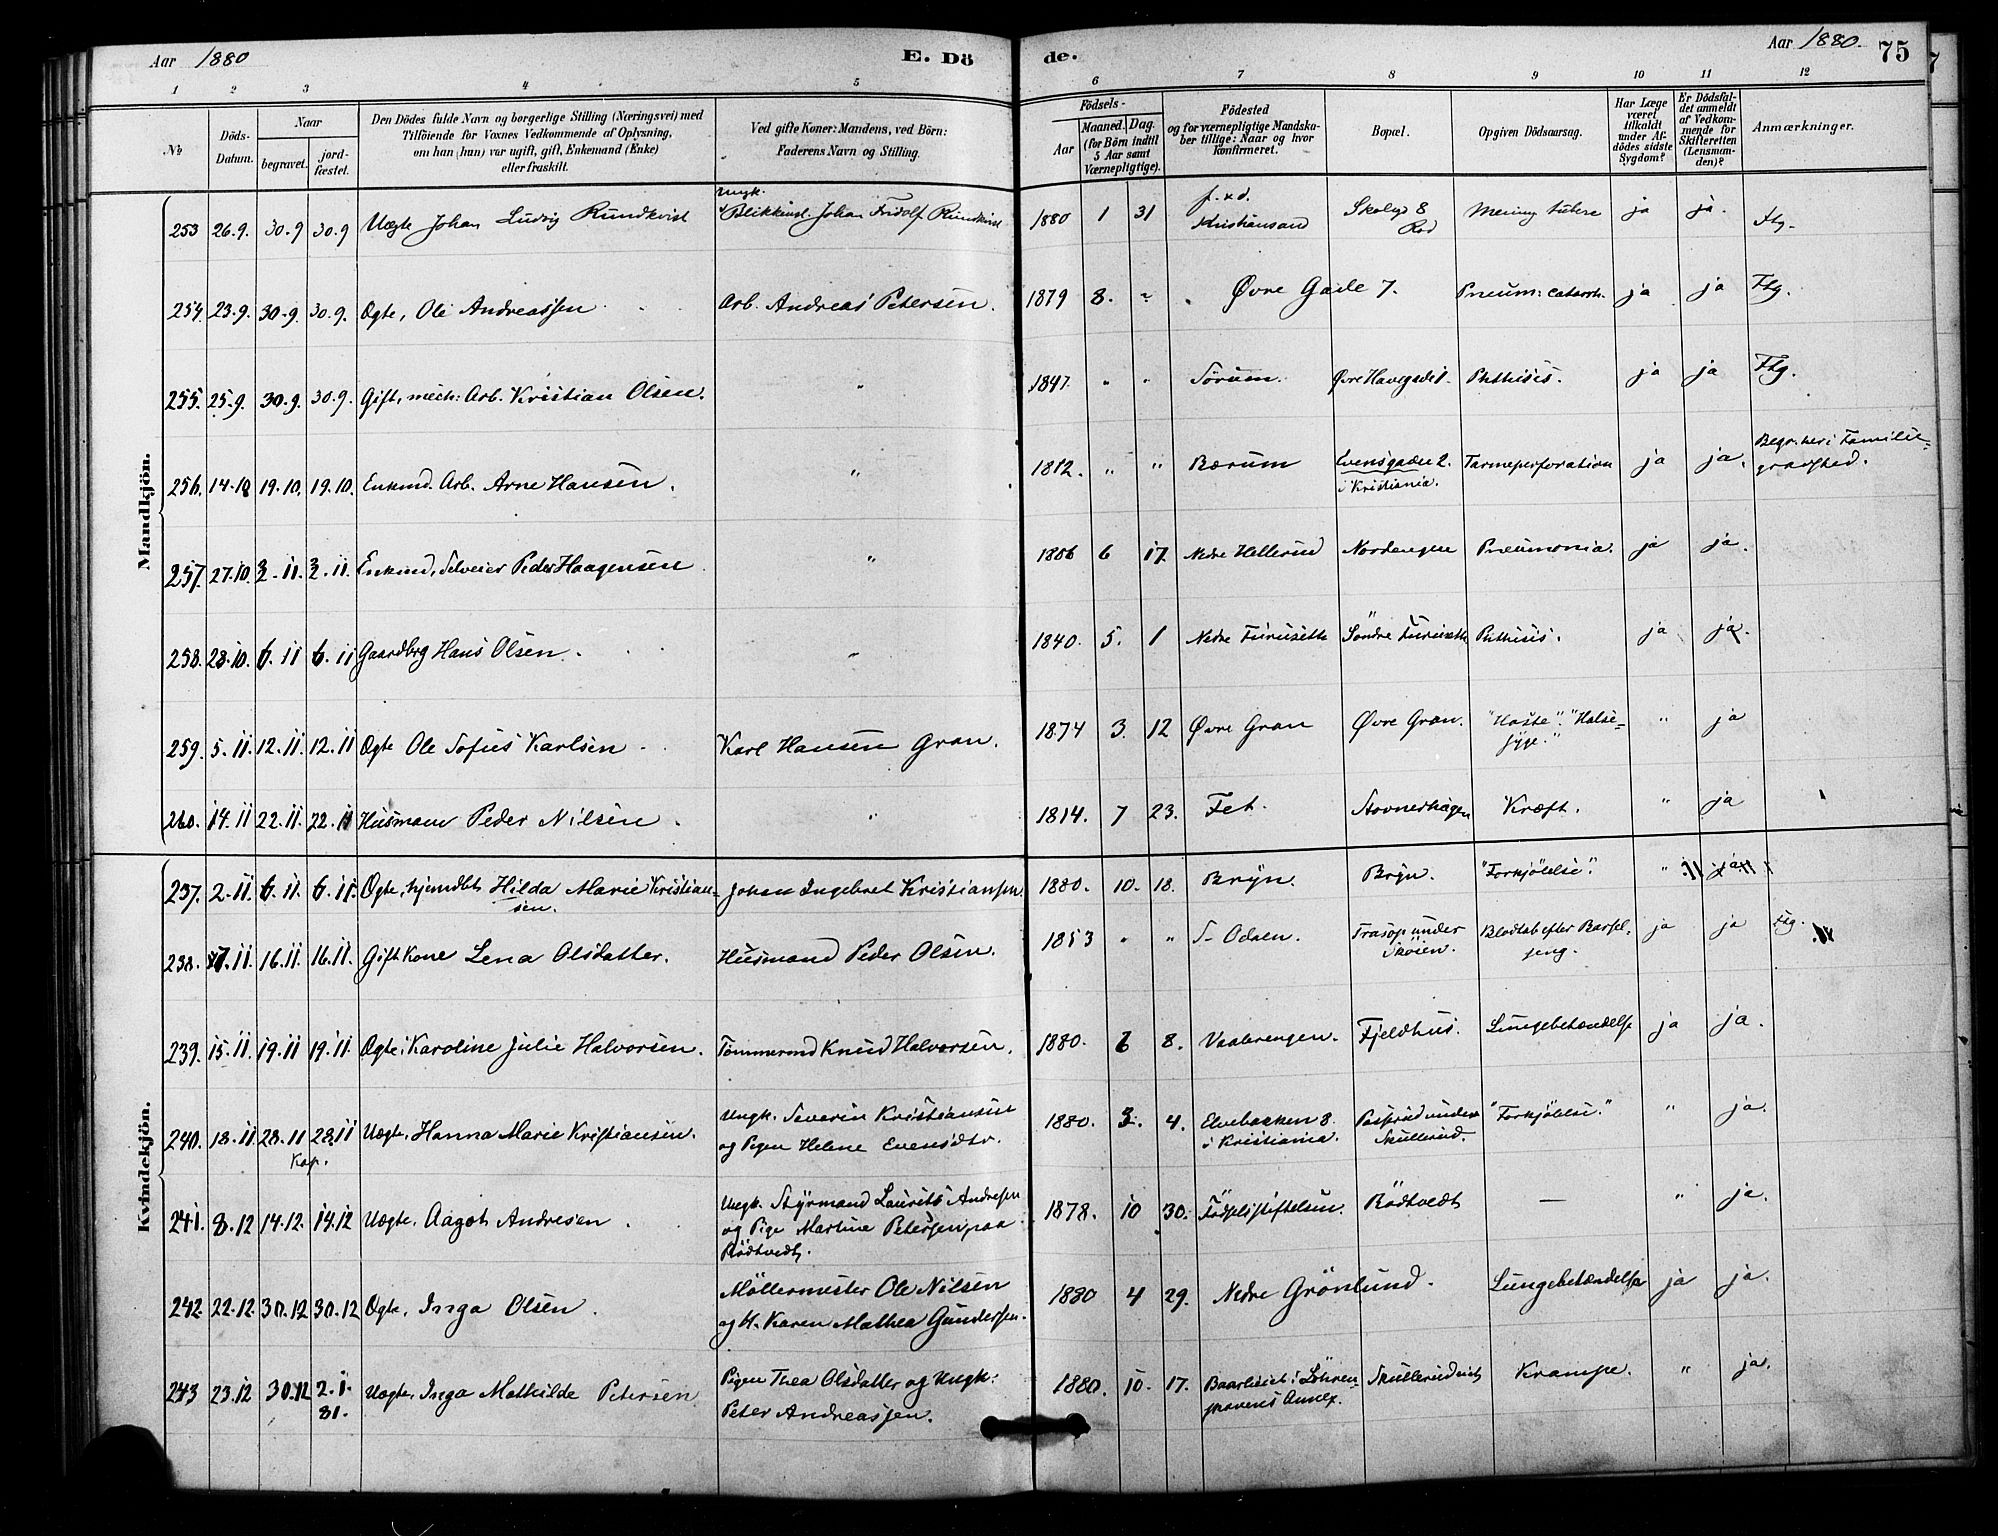 Aar 1880
E. Dö
de.
Aar 1880.
75
1 2 3 4 5 6 7 8 9 10 11 12
№
Döds-Datum.
Naar
begravet.
jord-fæstet.
Den Dödes fulde Navn og borgerlige Stilling (Næringsvei) med
Tilföiende for Voxnes Vedkommende af Oplysning,
om han (hun) var ugift, gift, Enkemand (Enke)
eller fraskilt.
Ved gifte Koner: Mandens, ved Börn:
Faderens Navn og Stilling.
Födsels-
Aar
Maaned. Dag.
(for Börn indtil
5 Aar samt
Værnepligtige).
Födested
og for værnepligtige Mandska-
ber tillige: Naar og hvor
Konfirmeret.
Bopæl.
Opgiven Dödsaarsag.
Har Læge
været
tilkaldt
under Af-
dödes sidste
Sygdom?
Er Dödsfal-
det anmeldt
af Vedkom-
mende for
Skifteretten
(Lensman-
den)?
Anmærkninger.
Mandkjön.
253 26.9. 30.9 30.9 Uægte Johan Ludvig Rundkvist Ungk. Blikkensl. Johan Fridolf Rundkvist 1880 1 31 f. x d. Kristiansand 8 ja ja. Ftg.
254. 23.9. 30.9. 30.9. Ægte, Ole Andreassen Arb. Andreas Petersen. 1879 8. " Øvre Gade 7. Pneum: catarrh. ja ja Ftg.
255. 25.9. 30.9. 30.9. Gift, mech: Arb. Kristian Olsen. " 1847. " " Sørum. Øvre Havegade 1. Phthisis. ja ja Ftg.
256. 14.10 19.10. 19.10. Enkmd. Arb. Arne Hansen. " 1812. " " Bærum Evensgaden 2. i Kristiania. Tarmeperforation ja ja. Begr. her i Familie-gravsted.
257. 27.10. 2.11. 2.11. Enkmd, Selveier Peder Haagensen " 1806 6 17. Nedre Hellerud Nordengen Pneumonia. ja ja.
258. 28.10. 6.11 6.11 Gaardbrg Hans Olsen. " 1840. 5. 1 Nedre Furuseth Söndre Furuseth Phthisis. ja ja.
259. 5.11. 12.11. 12.11 Ægte Ole Sofus Karlsen Karl Hansen Gran. 1874 3. 12 Øvre Gran Øvre Gran. "Hoste". "Halse-syge." " ja
260. 14.11 22.11. 22.11 Husmann Peder Nilsen. " 1814. 7 23. Fet. Stovnerhagen Kræft. " ja
Kvindekjön.
237. 2.11. 6.11. 6.11. Ægte, hjemdbt Hilda Marie Kristian-sen. Johan Ingebret Kristiansen 1880. 10. 18. Bryn. Bryn. "Forkjölelse". " ja
238. 7.11 16.11 16.11. Gift Kone Lena Olsdatter. Husmand Peder Olsen. 1853 " " S. Odalen. Trasop under Skøien. Blodtab efter Barsel-seng. ja ja Ftg.
239. 15.11. 19.11 19.11 Ægte. Karoline Julie Halvorsen. Tømmermd Knud Halvorsen. 1880. 6 8. Vaalerengen. Fjeldhus. Lungebetændelse ja ja.
240. 18.11 28.11 Kap. 28.11 Uægte, Hanna Marie Kristiansen. Ungk. Severin Kristiansen og Pigen Helene Evensdtr. 1880. 3. 4. Elvebakken 8. i Kristiania. under Skullerud. "Forkjölelse." " ja.
241. 8.12 14.12. 14.12 Uægte. Aagot Andresen Ungk. Styrmand Laurits Andresen og Pige Martine Petersen paa Rödtvedt. 1878. 10 30. Födselsstiftelsen. Rödtvedt — " ja.
242. 22.12. 30.12 30.12 Ægte, Inga Olsen. Möllermester Ole Nilsen og H. Karen Mathea Gundersen. 1880 4 29. Nedre Grönlund. Lungebetændelse ja ja.
243 23.12 30.12 2.1.81. Uægte, Inga Mathilde Petersen Pigen Thea Olsdatter og Ungk. Peter Andreassen. 1880. 10. 17. i Annex. Krampe. " ja.